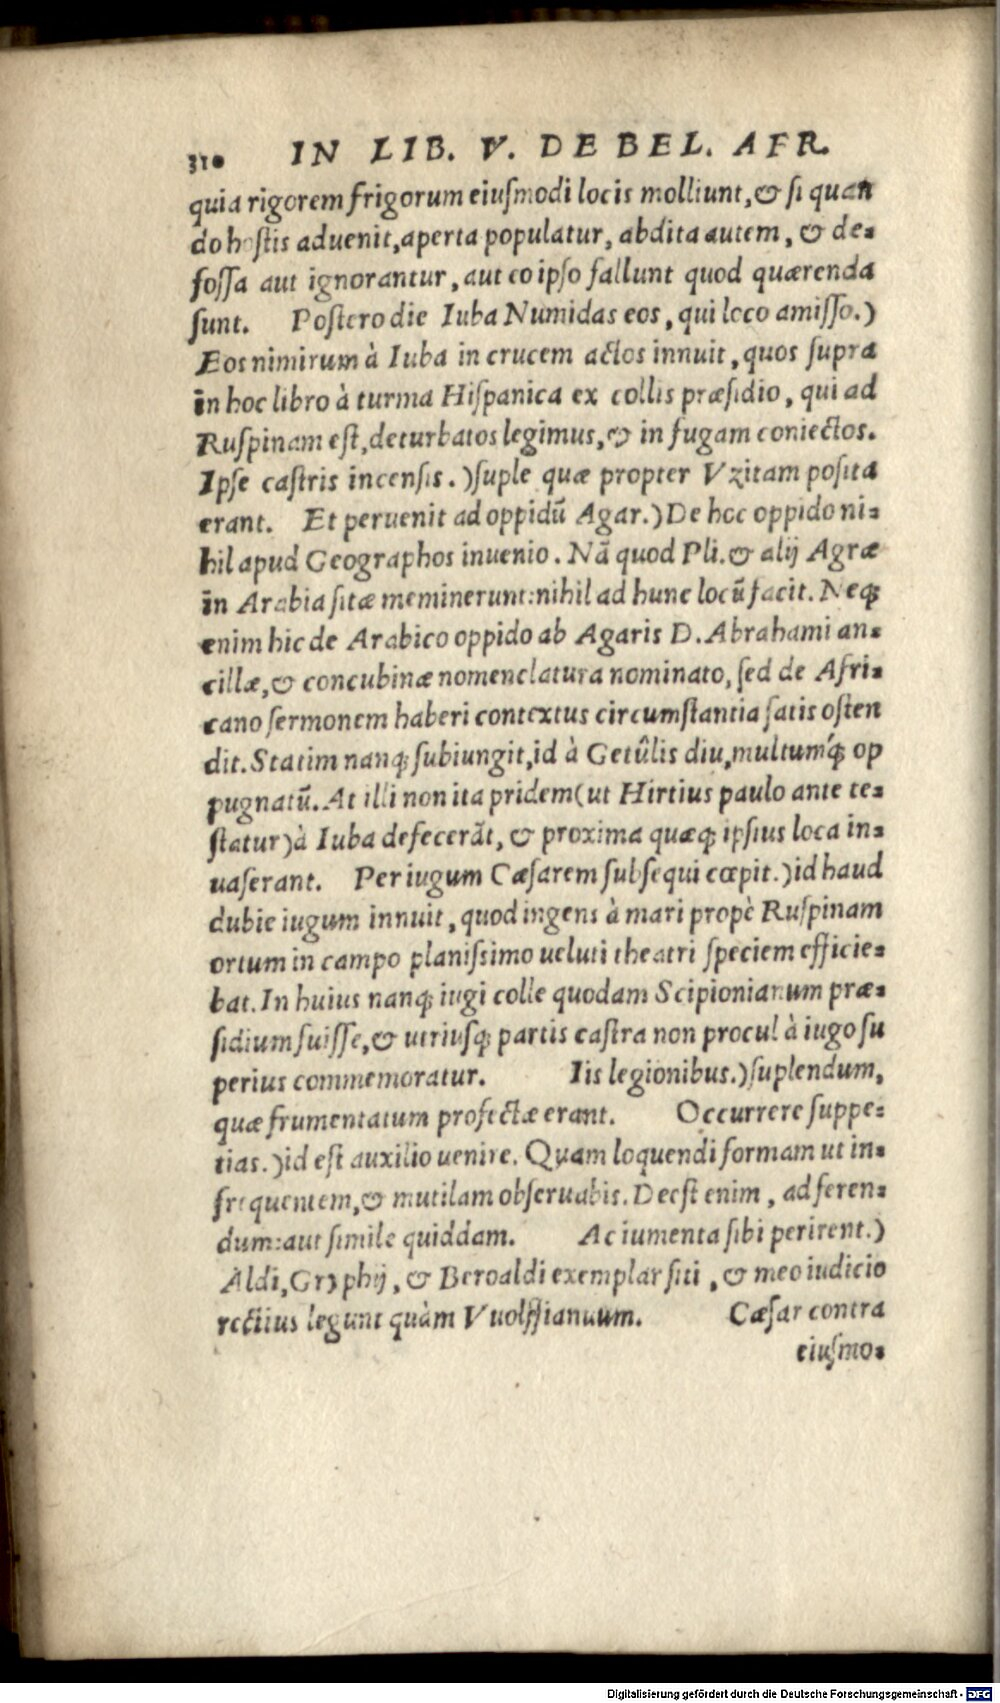 310 IN LIB. V. DE BEL. AFR.
quia rigorem frigorum eiuſmodi locis molliunt, & ſi quan
do hoſtis aduenit, aperta populatur, abdita autem, & de-
foſſa aut ignorantur, aut eo ipſo fallunt quod quærenda
ſunt. Poſtero die Iuba Numidas eos, qui loco amiſſo.)
Eos nimirum à Iuba in crucem actos innuit, quos ſupra
in hoc libro à turma Hiſpanica ex collis præſidio, qui ad
Ruſpinam eſt, deturbatos legimus, & in fugam coniectos.
Ipſe caſtris incenſis.) ſuple quæ propter Vzitam poſita
erant. Et peruenit ad oppidũ Agar.) De hoc oppido ni-
hil apud Geographos inuenio. Nã quod Pli. & alij Agræ
in Arabia ſitæ meminerunt: nihil ad hunc locũ facit. Neq;
enim hic de Arabico oppido ab Agaris D. Abrahami an-
cillæ, & concubinæ nomenclatura nominato, ſed de Afri-
cano ſermonem haberi contextus circumſtantia ſatis oſten
dit. Statim nanq; ſubiungit, id à Getûlis diu, multumq́; op
pugnatũ. At illi non ita pridem (ut Hirtius paulo ante te-
ſtatur) à Iuba defecerãt, & proxima quæq; ipſius loca in-
uaſerant. Per iugum Cæſarem ſubſequi cœpit.) id haud
dubie iugum innuit, quod ingens à mari propè Ruſpinam
ortum in campo planiſsimo ueluti theatri ſpeciem efficie-
bat. In huius nanq; iugi colle quodam Scipionianum præ-
ſidium fuiſſe, & utriuſq; partis caſtra non procul à iugo ſu
perius commemoratur. Iis legionibus.) ſuplendum,
quæ frumentatum profectæ erant. Occurrere ſuppe-
tias.) id eſt auxilio uenire. Quam loquendi formam ut in-
frequentem, & mutilam obſeruabis. Deeſt enim, ad feren-
dum: aut ſimile quiddam. Ac iumenta ſibi perirent.)
Aldi, Gryphij, & Beroaldi exemplar ſiti, & meo iudicio
rectius legunt quàm Vuolffianuum. Cæſar contra
eiuſmo-
Digitalisierung gefördert durch die Deutsche Forschungsgemeinschaft - DFG